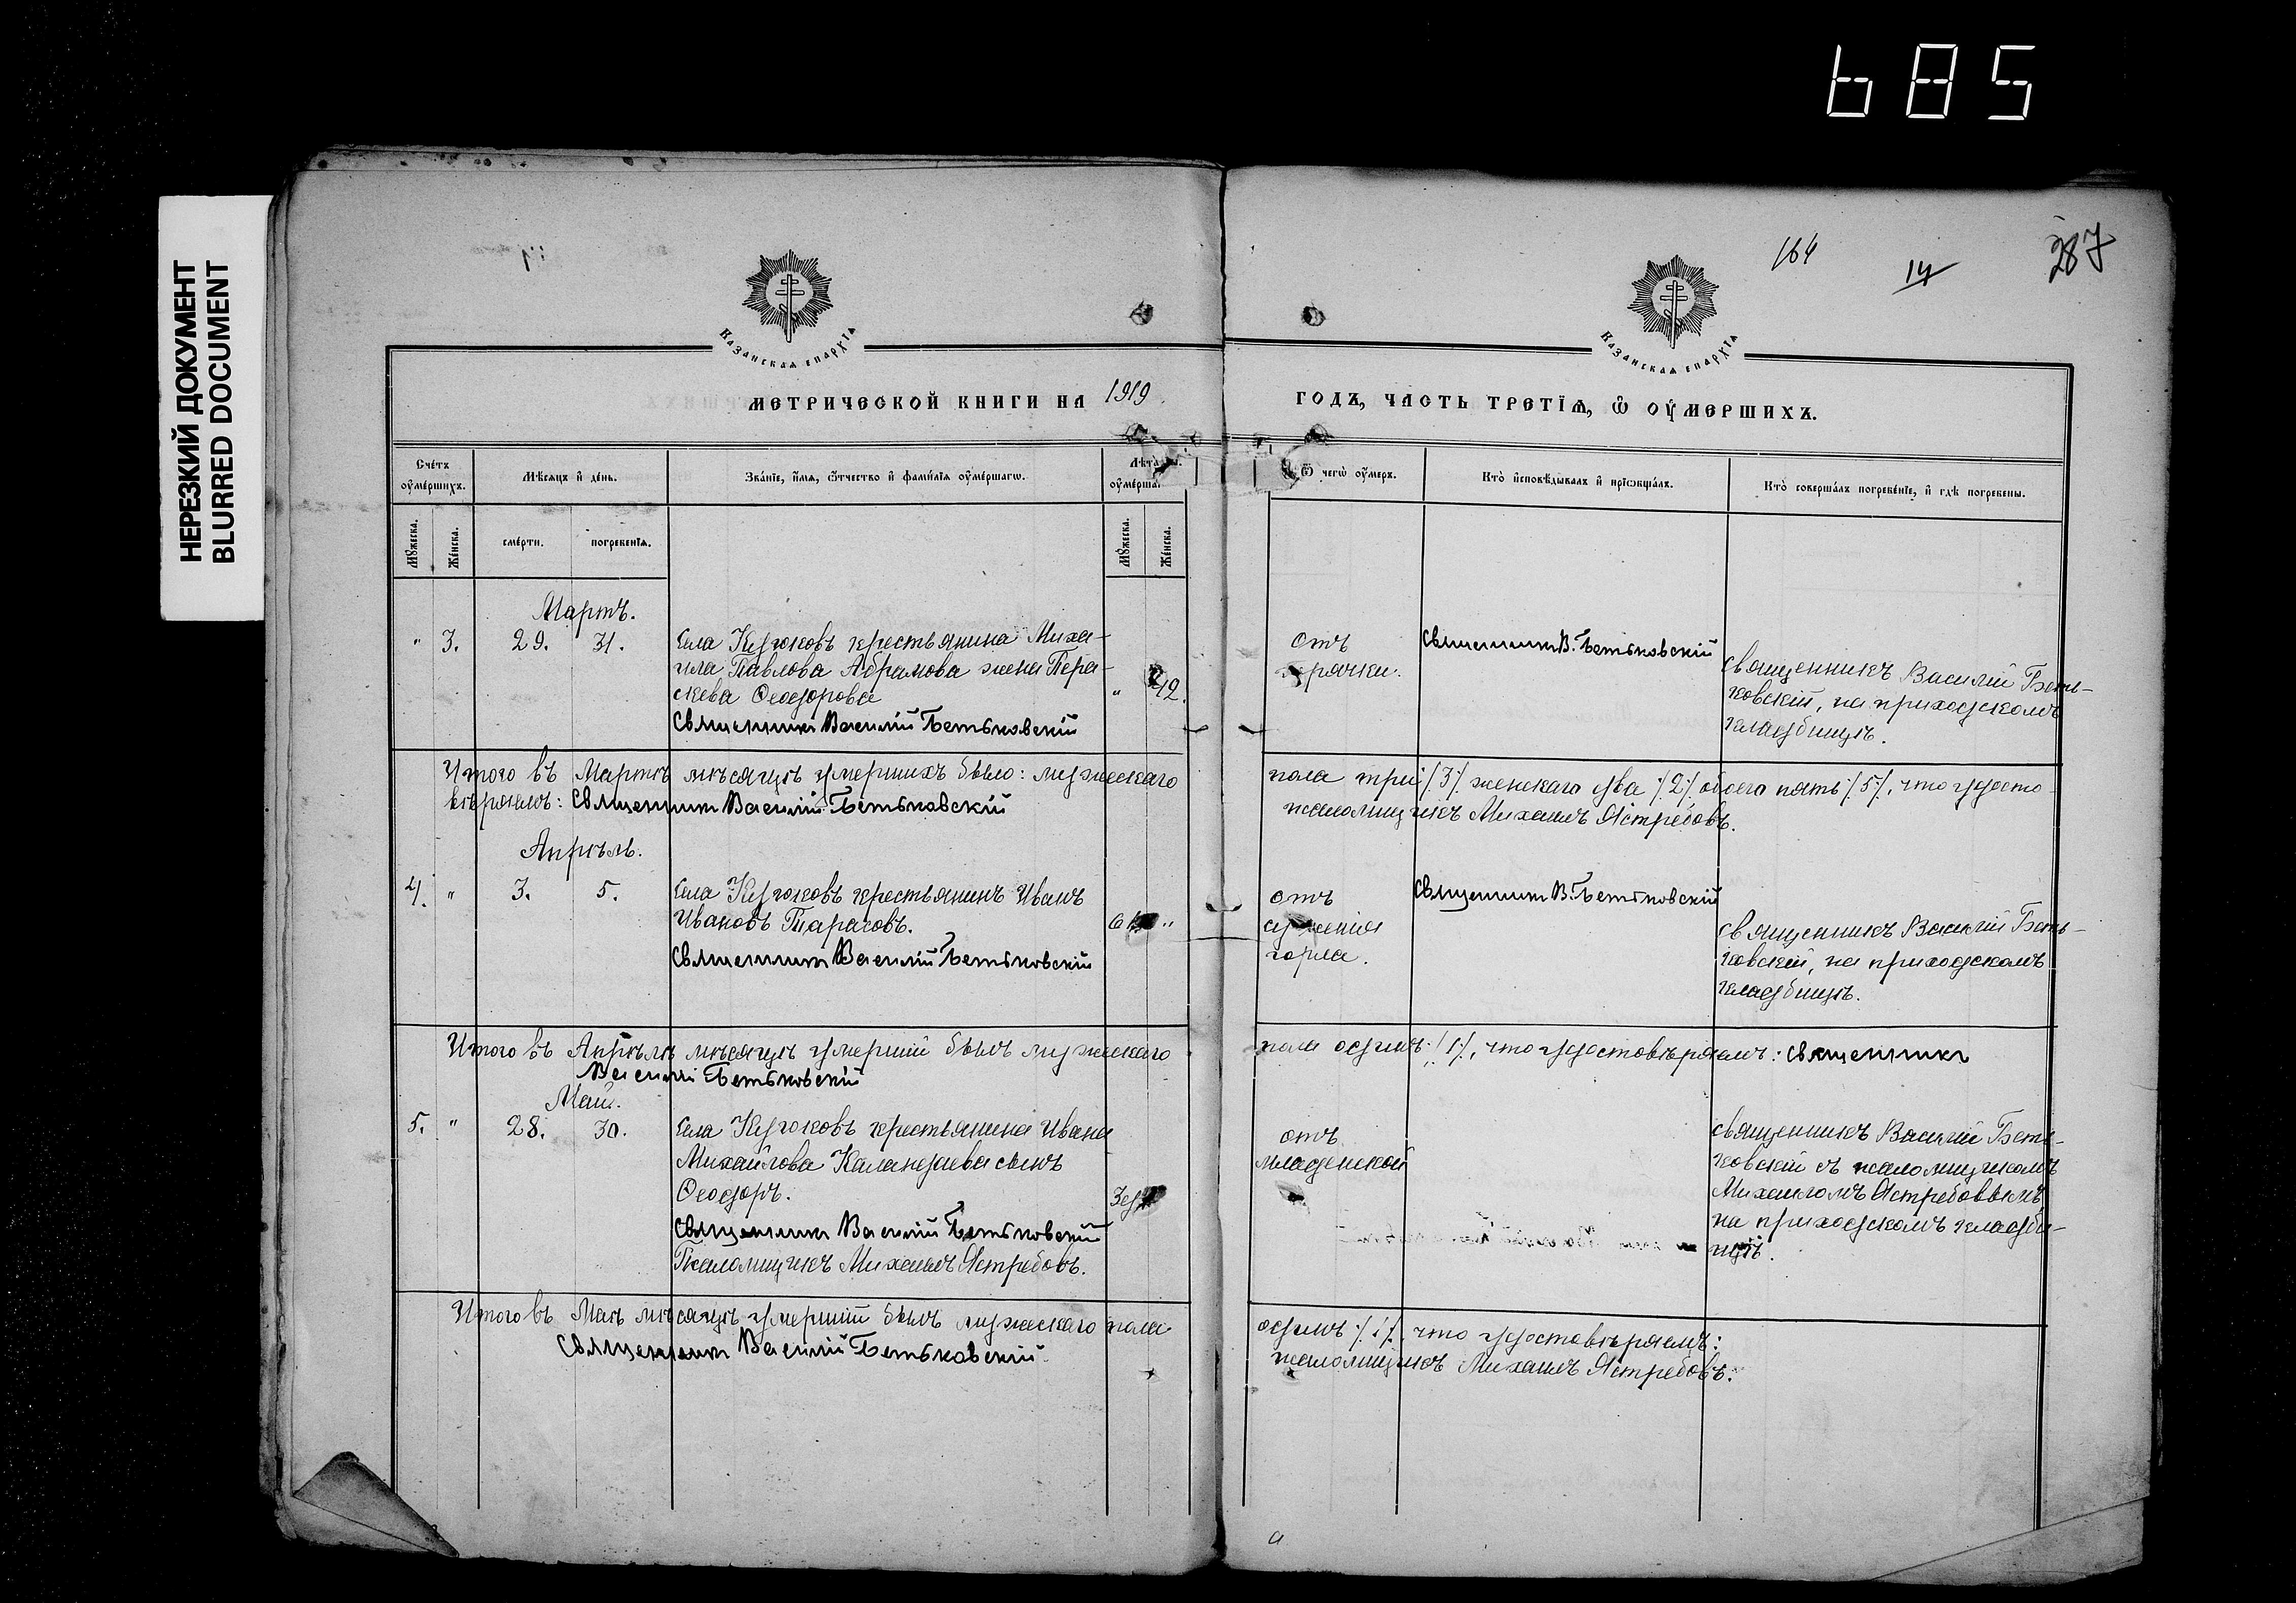 685
НЕРЕЗКИЙ ДОКУМЕНТ
BLURRED DOCUMENT
164
14
287
Казанская епархїѧ
Казанская епархїѧ
МЕТРИЧЕСКОЙ КНИГИ НА 1919
ГОДЪ, ЧАСТЬ ТРЕТЇѦ, Ѡ ОУМЕРШИХЪ.
Счетъ оумершихъ.
Мѣсяцъ и день.
Званїе, имѧ, ѿчество и фамилїѧ оумершагѡ.
Лѣта
оумерша
Ѿ чегѡ оумеръ.
Кто исповѣдывалъ и прїобщалъ.
Кто совершалъ погребенїе, и гдѣ погребены.
Мужеска.
Женска.
смерти.
погребенїѧ.
Мужеска.
Женска.
Мартъ.
" 3. 29. 31. Села Кугюковъ крестьянина Миха-
ила Павлова Абрамова жена Пера-
скева Ѳеодорова " 42.
Священникъ Василій Бетьковскій
отъ
горячки.
Священникъ В. Бетьковскій
Священникъ Василій Беть-
ковскій, на приходскомъ
кладбищѣ.
Итого въ Мартѣ мѣсяцѣ умершихъ было: мужескаго
пола три /:3:/ женскаго два /:2:/ обоего пять /:5:/, что удосто-
вѣряемъ: Священникъ Василій Бетьковскій
псаломщикъ Михаилъ Ястребовъ.
Апрѣль.
4. " 3. 5. Села Кугюковъ крестьянинъ Иванъ
Ивановъ Тарасовъ. "
Священникъ Василій Бетьковскій
отъ
сужения
горла.
Священникъ В. Бетьковскій
Священникъ Василій Беть-
ковскій, на приходскомъ
кладбищѣ.
Итого въ Апрѣлѣ мѣсяцѣ умершій былъ мужескаго
пола одинъ /:1:/, что удостовѣряемъ: Священникъ
Василій Бетьковскій
Май.
5. " 28. 30. Села Кугюковъ крестьянина Ивана
Михайлова Каландаева сынъ
Ѳеодоръ.
Священникъ Василій Бетьковскій
Псаломщикъ Михаилъ Ястребовъ.
отъ
младенской
Священникъ Василій Беть-
ковскій съ псаломщикомъ
Михаиломъ Ястребовымъ
на приходскомъ кладби-
щѣ.
Итого въ Маѣ мѣсяцѣ умершій былъ мужескаго пола
одинъ /:1:/, что удостовѣряемъ:
Священникъ Василій Бетьковскій
псаломщикъ Михаилъ Ястребовъ.